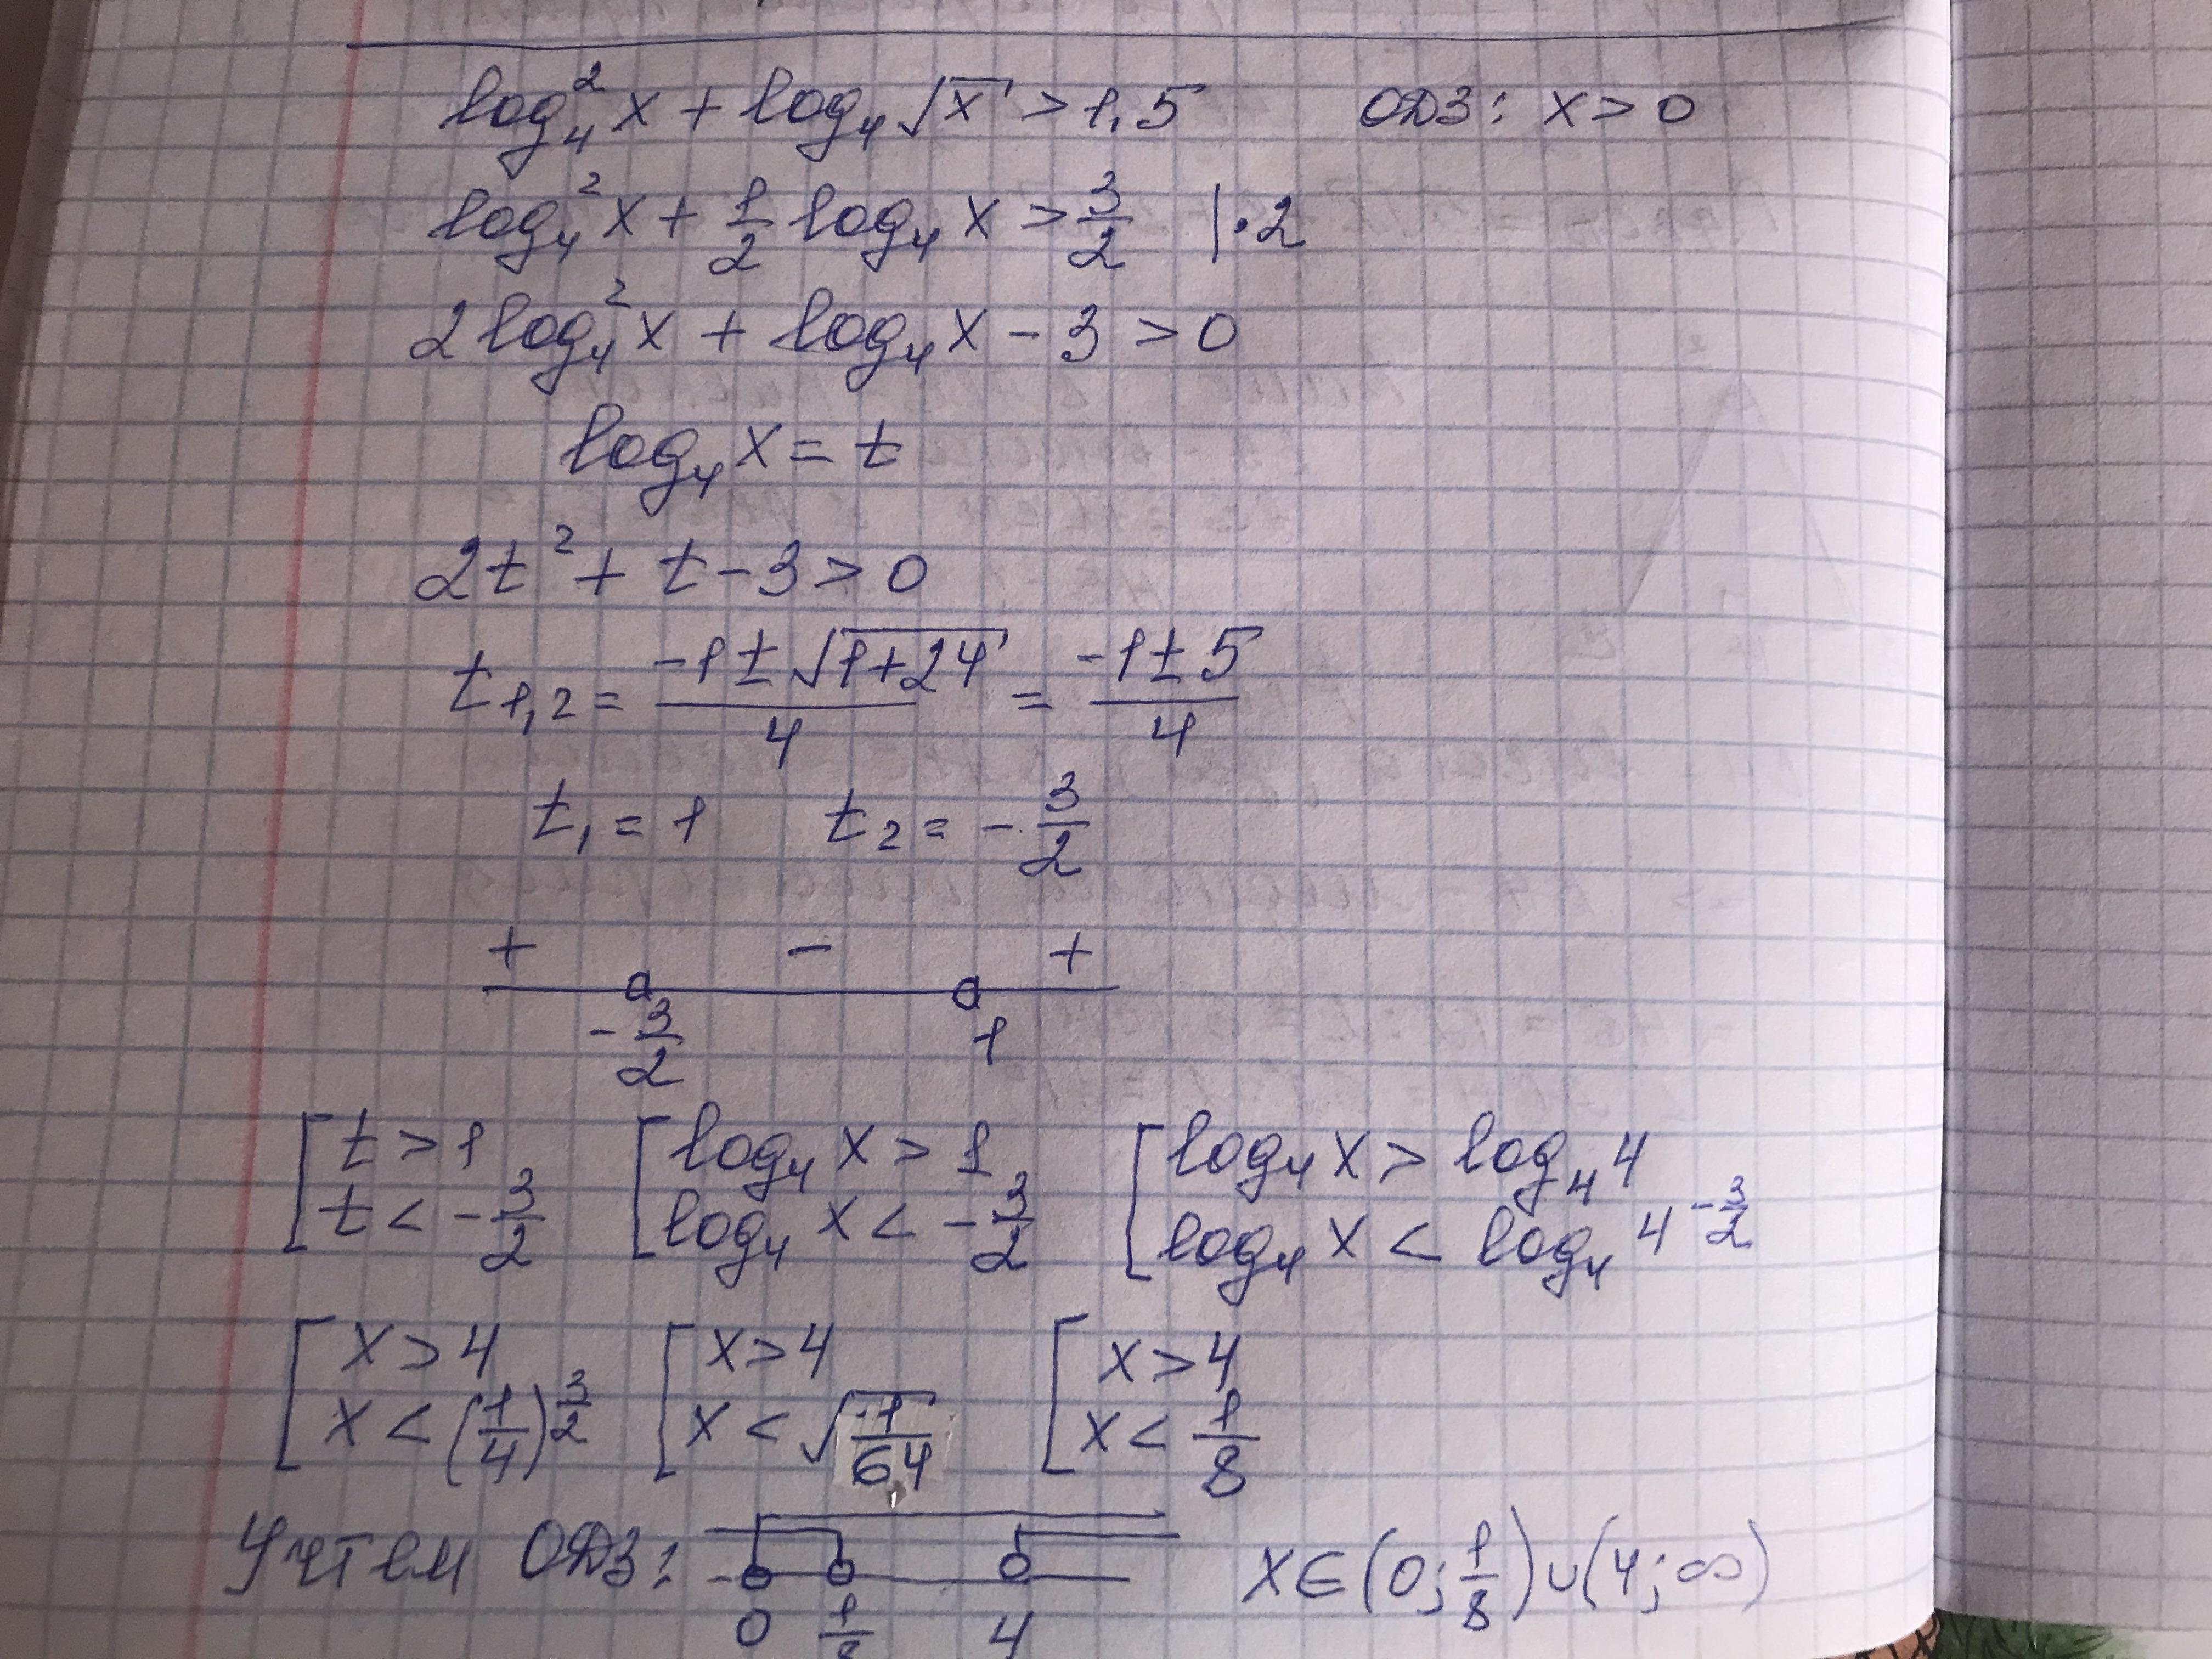 log₄²x + log₄√x > 1,5 ОДЗ: x > 0
log₄²x + 1/2 log₄x > 3/2 |·2
2log₄²x + log₄x - 3 > 0
log₄x = t
2t² + t - 3 > 0
t₁,₂ = (-1 ± √(1+24))/4 = (-1 ± 5)/4
t₁ = 1 t₂ = -3/2
+ - +
-3/2 1
[ t > 1 [ log₄x > 1 [ log₄x > log₄4
t < -3/2 log₄x < -3/2 log₄x < log₄4^(-3/2)
[ x > 4 [ x > 4 [ x > 4
x < (1/4)^(3/2) x < √(1/64) x < 1/8
Учтем ОДЗ: x ∈ (0; 1/8) ∪ (4; ∞)
0 1/8 4